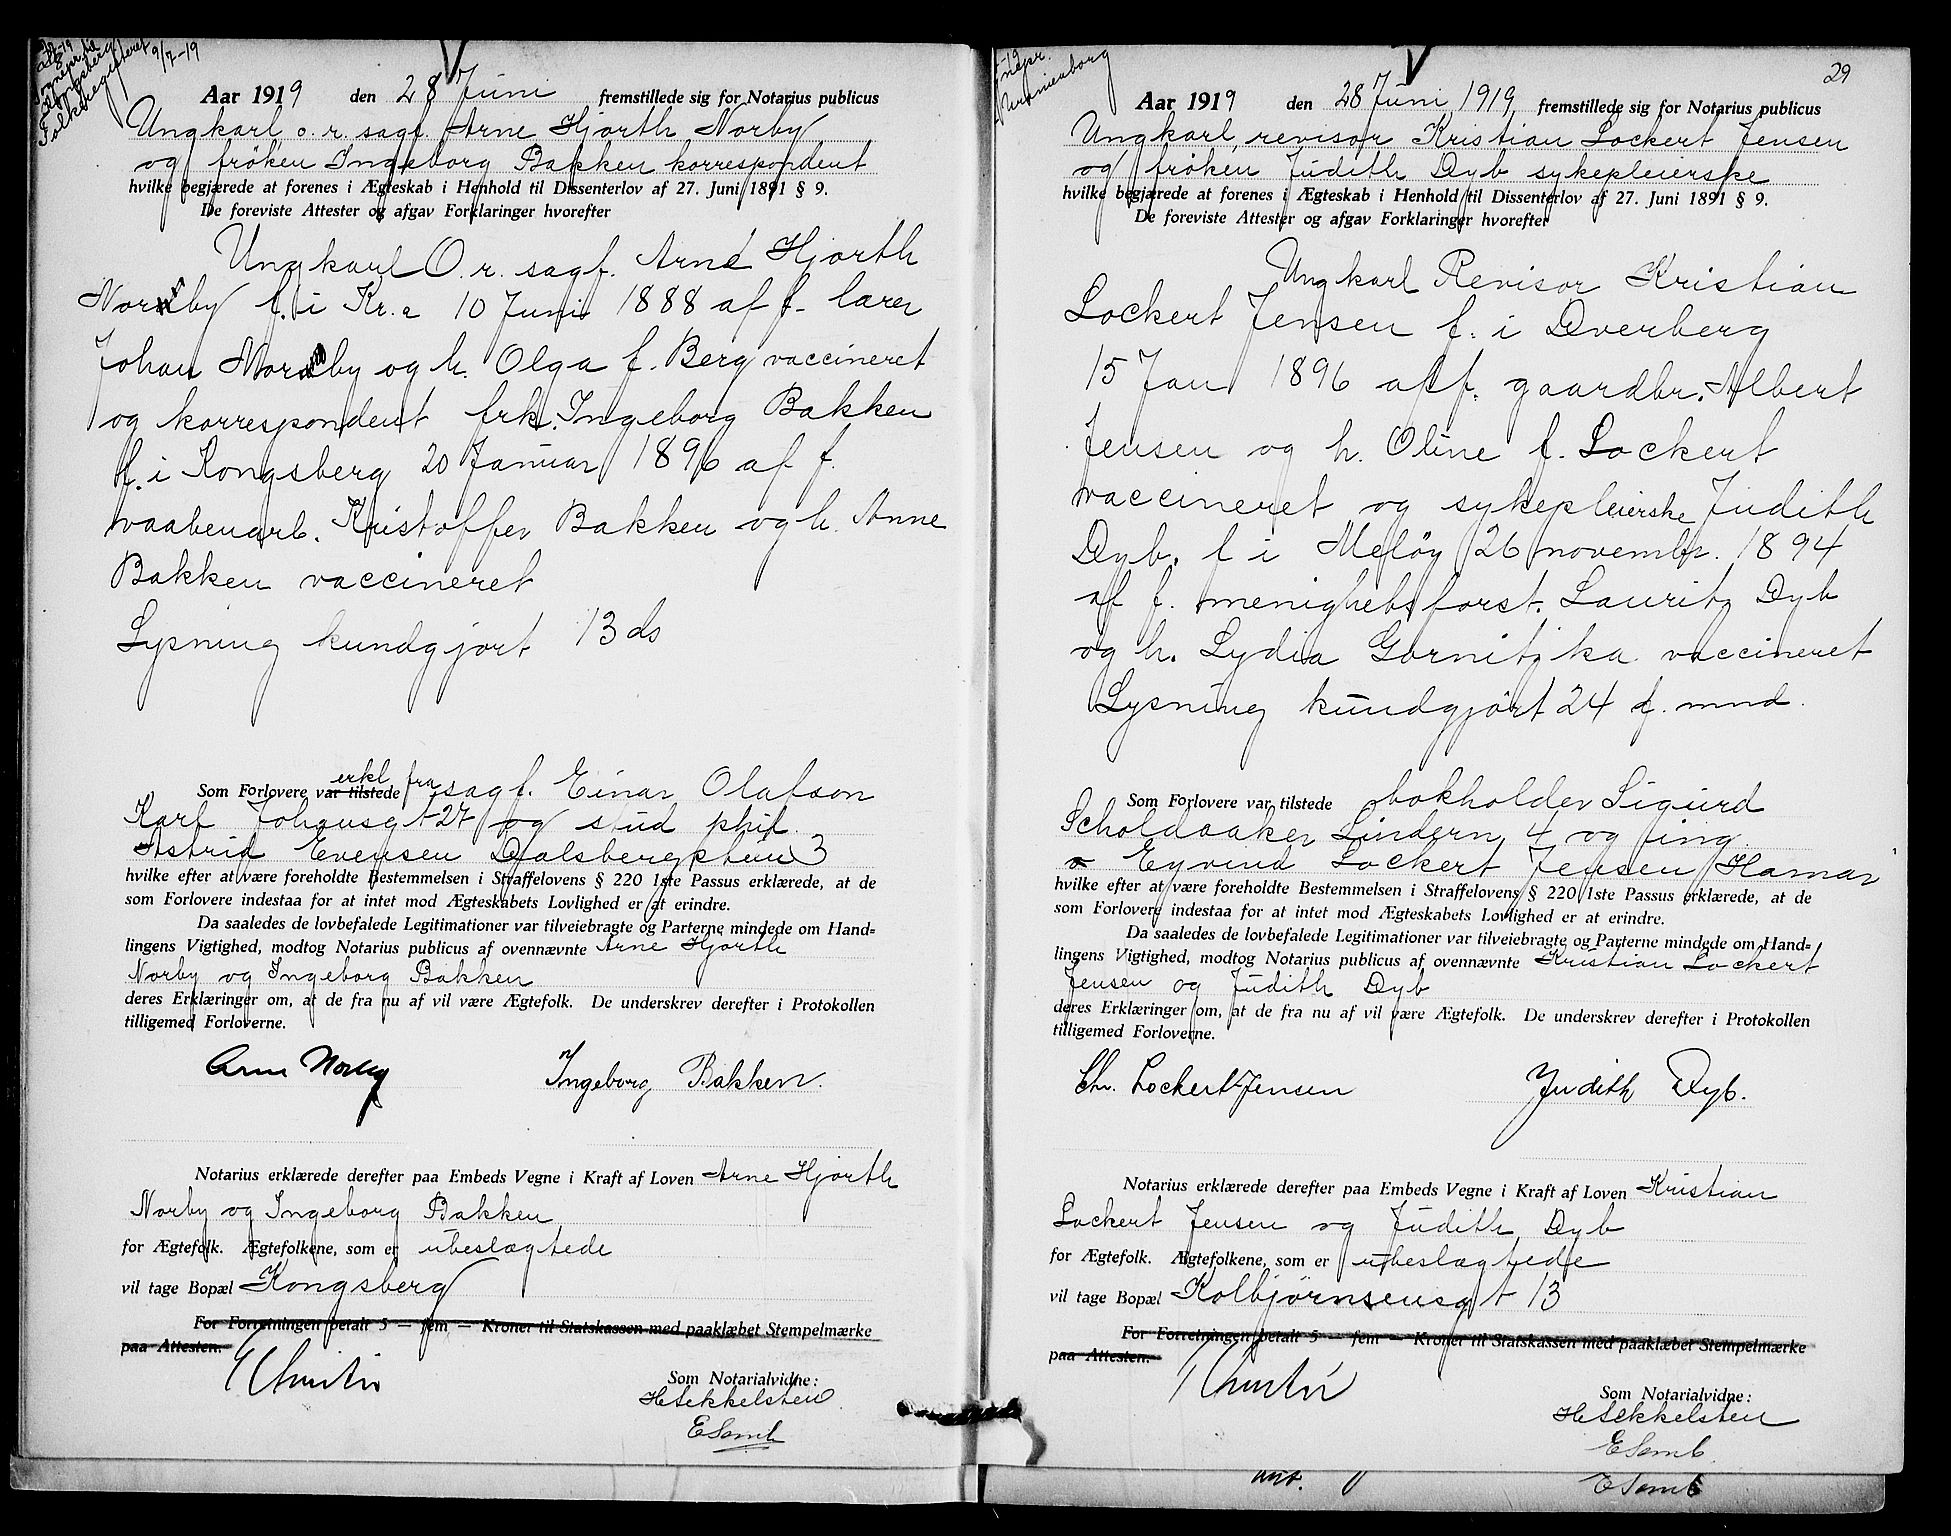 Folkeregisteret 9/7-19
Aar 1919 den 28 Juni fremstillede sig for Notarius publicus
Ungkarl o. r. sagf. Arne Hjorth Norby
og fröken Ingeborg Bakken korrespondent
hvilke begjærede at forenes i Ægteskab i Henhold til Dissenterlov af 27. Juni 1891 § 9.
De foreviste Attester og afgav Forklaringer hvorefter
Ungkarl O. r. sagf. Arne Hjorth
Norby f. i Kr.a 10 Juni 1888 af f. lærer
Johan Norby og h. Olga f. Berg vaccineret
og korrespondent frk. Ingeborg Bakken
f. i Kongsberg 20 Januar 1896 af f.
vaabenarb. Kristoffer Bakken og h. Anne
Bakken vaccineret
Lysning kundgjort 13 ds
erkl fra
Som Forlovere var tilstede sagf. Einar Olafson
Karl Johansgt 27 og stud phil.
Astrid Evensen Dalsbergstien 3
hvilke efter at være foreholdte Bestemmelsen i Straffelovens § 220 1ste Passus erklærede, at de
som Forlovere indestaa for at intet mod Ægteskabets Lovlighed er at erindre.
Da saaledes de lovbefalede Legitimationer var tilveiebragte og Parterne mindede om Hand=
lingens Vigtighed, modtog Notarius publicus af ovennævnte Arne Hjorth
Norby og Ingeborg Bakken
deres Erklæringer om, at de fra nu af vil være Ægtefolk. De underskrev derefter i Protokollen
tilligemed Forloverne.
Arne Norby Ingeborg Bakken.
Notarius erklærede derefter paa Embeds Vegne i Kraft af Loven Arne Hjorth
Norby og Ingeborg Bakken
for Ægtefolk. Ægtefolkene, som er ubeslægtede
vil tage Bopæl Kongsberg
For Forretningen betalt 5 — fem — Kroner til Statskassen med paaklæbet Stempelmærke
paa Attesten.
Som Notarialvidne:
H Sekkelsten
E Semb
29
Uranienborg
Aar 1919 den 28 Juni 1919 fremstillede sig for Notarius publicus
Ungkarl, revisor Kristian Lockert Jensen
og fröken Judith Dyb sykepleierske
hvilke begjærede at forenes i Ægteskab i Henhold til Dissenterlov af 27. Juni 1891 § 9.
De foreviste Attester og afgav Forklaringer hvorefter
Ungkarl Revisor Kristian
Lockert Jensen f. i Dverberg
15 Jan 1896 af f. gaardbr. Albert
Jensen og h. Oline f. Lockert
vaccineret og sykepleierske Judith
Dyb. f i Meløy 26 novembr. 1894
af f. menighetsforst. Lauritz Dyb
og h. Lydia Gornitzka vaccineret
Lysning kundgjört 24 d. mnd.
Som Forlovere var tilstede bokholder Sigurd
Scholdaaker Lindern 4 og ing.
Eyvind Lockert Jensen Hamar
hvilke efter at være foreholdte Bestemmelsen i Straffelovens § 220 1ste Passus erklærede, at de
som Forlovere indestaa for at intet mod Ægteskabets Lovlighed er at erindre.
Da saaledes de lovbefalede Legitimationer var tilveiebragte og Parterne mindede om Hand=
lingens Vigtighed, modtog Notarius publicus af ovennævnte Kristian Lockert
Jensen og Judith Dyb
deres Erklæringer om, at de fra nu af vil være Ægtefolk. De underskrev derefter i Protokollen
tilligemed Forloverne.
Chr. Lockert Jensen Judith Dyb.
Notarius erklærede derefter paa Embeds Vegne i Kraft af Loven Kristian
Lockert Jensen og Judith Dyb
for Ægtefolk. Ægtefolkene, som er ubeslægtede
vil tage Bopæl Kolbjørnsensgt 13
For Forretningen betalt 5 — fem — Kroner til Statskassen med paaklæbet Stempelmærke
paa Attesten.
Som Notarialvidne:
H Sekkelsten
E Semb.
E Semb